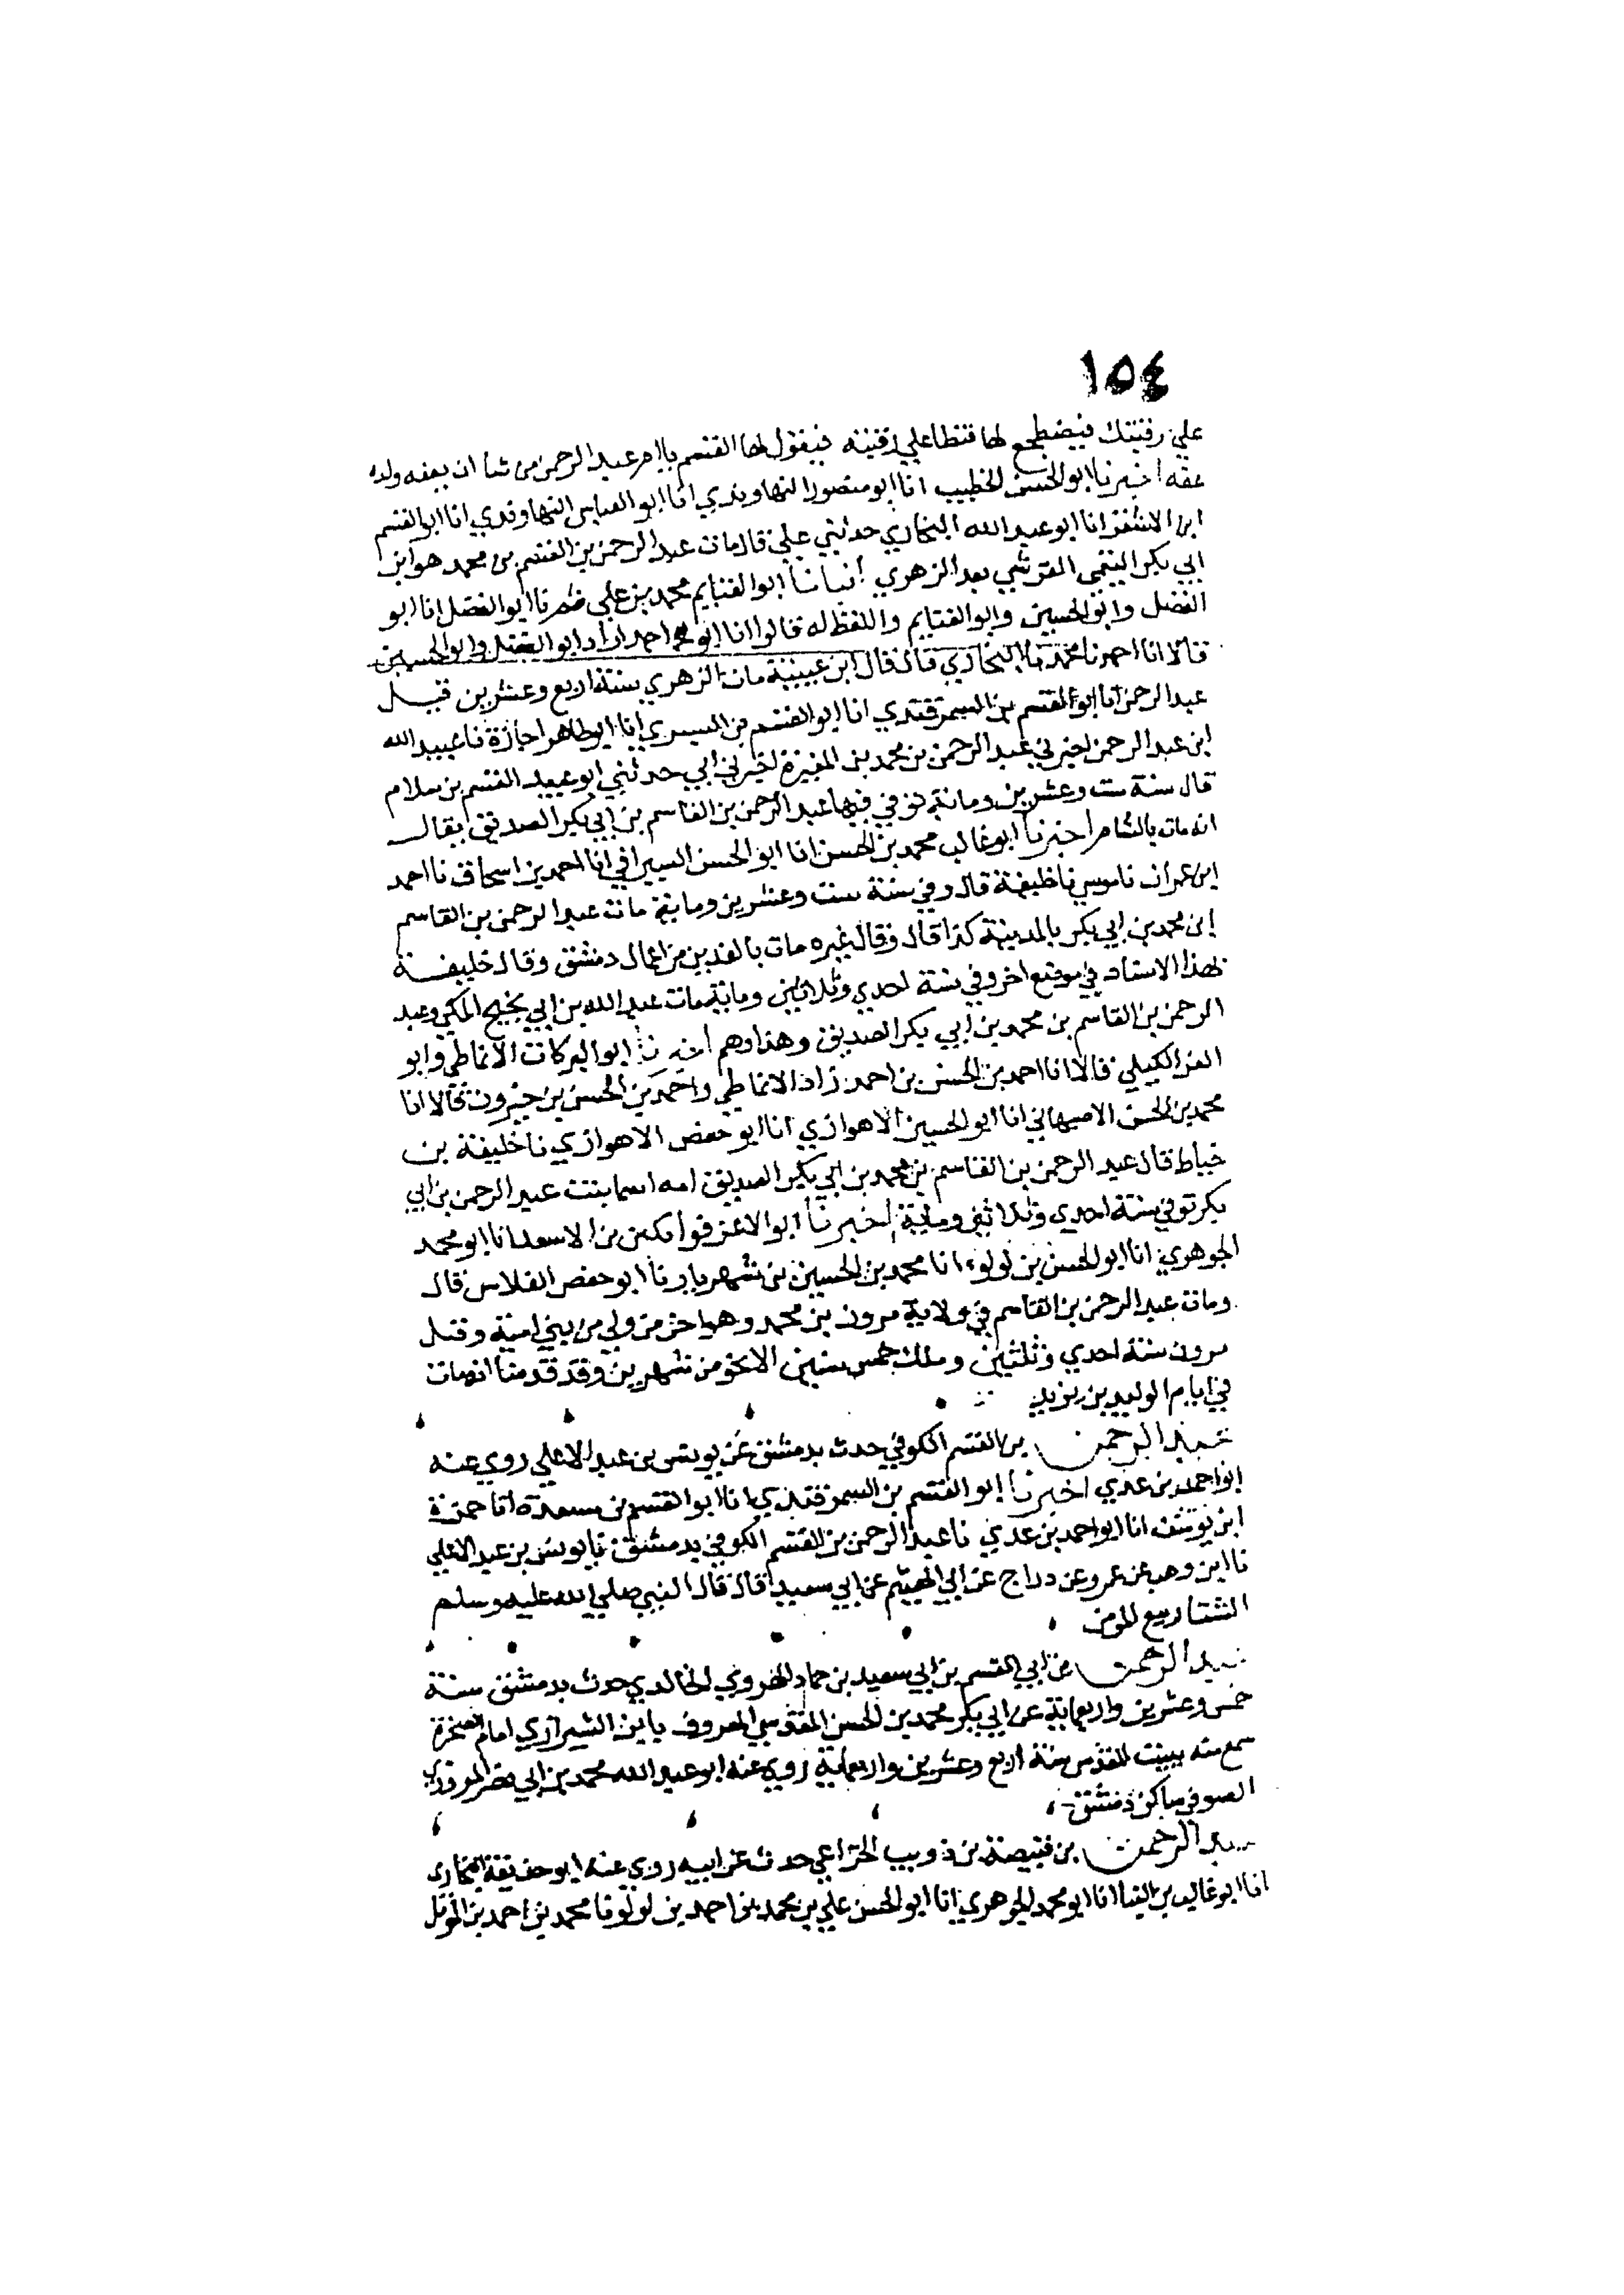 ١٥٤
علي رقبتك فيضطجع لها فتطا علي رقبته فيقول لها القسم يا ام عبد الرحمن من شا ان يعقه ولده
عقه اخبرنا ابو الحسن الخطيب انا ابو منصور النهاوندي انا ابو العباس النهاوندي انا ابو القسم
ابن الاشقر انا ابو عبد الله البخاري حدثني علي قال مات عبد الرحمن بن القسم بن محمد هو ابن
ابي بكر التيمي القرشي بعد الزهري انبانا ابو الغنايم محمد بن علي ثم نا ابو الفضل انا ابو
الفضل وابو الحسين وابو الغنايم واللفظ له قالوا انا ابو محمد احمد زاد ابو الفضل وابو الحسين
قالا انا احمد نا محمد نا البخاري قال قال ابن عيينة مات الزهري سنة اربع وعشرين قبل
عبد الرحمن انا ابو القسم بن السمرقندي انا ابو القسم بن البسري انا ابو طاهر اجازة نا عبيد الله
ابن عبد الرحمن اخبرني عبد الرحمن بن محمد بن المغيرة اخبرني ابي حدثني ابو عبيد القسم بن سلام
قال سنة ست وعشرين وماية توفي فيها عبد الرحمن بن القاسم بن ابي بكر الصديق يقال
انه مات بالشام اخبرنا ابو غالب محمد بن الحسن انا ابو الحسن السيرافي انا احمد بن اسحاق نا احمد
ابن عمران نا موسي نا خليفة قال وفي سنة ست وعشرين وماية مات عبد الرحمن بن القاسم
ابن محمد بن ابي بكر بالمدينة كذا قال وقال غيره مات بالفدين من اعمال دمشق وقال خليفة
بهذا الاسناد في موضع اخر وفي سنة احدي وثلاثين وماية مات عبد الله بن ابي نجيح المكي وعبد
الرحمن بن القاسم بن محمد بن ابي بكر الصديق وهذا وهم اخبرنا ابو البركات الانماطي وابو
العز الكيلي قالا انا احمد بن الحسن بن احمد زاد الانماطي واحمد بن الحسن بن خيرون قالا انا
محمد بن الحسن الاصبهاني انا ابو الحسين الاهوازي انا ابو حفص الاهوازي نا خليفة بن
خياط قال عبد الرحمن بن القاسم بن محمد بن ابي بكر الصديق امه اسما بنت عبد الرحمن بن ابي
بكر توفي سنة احدي وثلاثين وماية اخبرنا ابو الاعز قراتكين بن الاسعد انا ابو محمد
الجوهري انا ابو الحسن بن لولو انا محمد بن الحسين بن شهريار نا ابو حفص الفلاس قال
ومات عبد الرحمن بن القاسم في ولاية مرون بن محمد وهو اخر من ولي من بني امية وقتل
مرون سنة احدي وثلثين وملك خمس سنين الا نحو من شهرين وقد قدمنا انه مات
في ايام الوليد بن يزيد
عبد الرحمن بن القسم الكوفي حدث بدمشق عن يونس بن عبد الاعلي روي عنه
ابو احمد بن عدي اخبرنا ابو القسم بن السمرقندي انا ابو القسم بن مسعدة انا حمزة
ابن يوسف انا ابو احمد بن عدي نا عبد الرحمن بن القسم الكوفي بدمشق نا يونس بن عبد الاعلي
نا ابن وهب عن عمرو عن دراج عن ابي الهيثم عن ابي سعيد قال قال النبي صلي الله عليه وسلم
الشتا ربيع المومن
عبد الرحمن بن ابي القسم بن ابي سعيد بن حماد الهروي الخالدي حدث بدمشق سنة
خمس وعشرين واربعماية عن ابي بكر محمد بن الحسن المقدسي المعروف بابن الشيرازي امام الصخرة
سمع منه ببيت المقدس سنة اربع وعشرين واربعماية روي عنه ابو عبد الله محمد بن ابي نصر المروزي
الصوفي ساكن دمشق
عبد الرحمن بن قبيصة بن ذويب الخزاعي حدث عن ابيه روي عنه ابو حذيفة البخاري
انا ابو غالب بن البنا انا ابو محمد الجوهري انا ابو الحسن علي بن محمد بن احمد بن لولو نا محمد بن احمد بن المومل